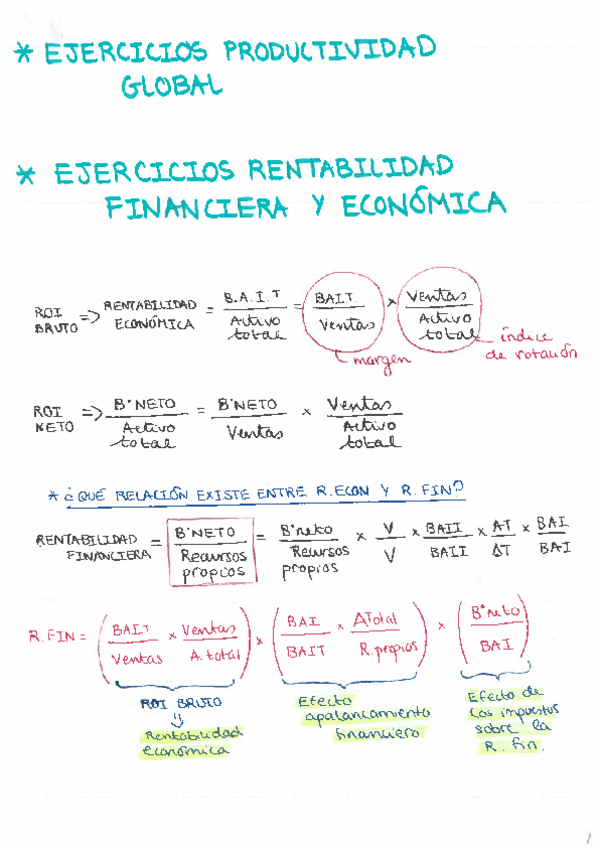 * EJERCICIOS PRODUCTIVIDAD
GLOBAL
* EJERCICIOS RENTABILIDAD
FINANCIERA Y ECONÓMICA
ROI BRUTO => RENTABILIDAD ECONÓMICA = B.A.I.T / Activo total = BAIT / Ventas × Ventas / Activo total
margen
índice de rotación
ROI NETO => Bº NETO / Activo total = Bº NETO / Ventas × Ventas / Activo total
* ¿QUÉ RELACIÓN EXISTE ENTRE R.ECON Y R.FIN?
RENTABILIDAD FINANCIERA = Bº NETO / Recursos propios = Bº neto / Recursos propios × V / V × BAII / BAII × AT / AT × BAI / BAI
R.FIN = (BAIT / Ventas × Ventas / A.total) × (BAI / BAIT × ATotal / R.propios) × (Bº neto / BAI)
ROI BRUTO
Rentabilidad
económica
Efecto
apalancamiento
financiero
Efecto de
los impuestos
sobre la
R. fin.
1